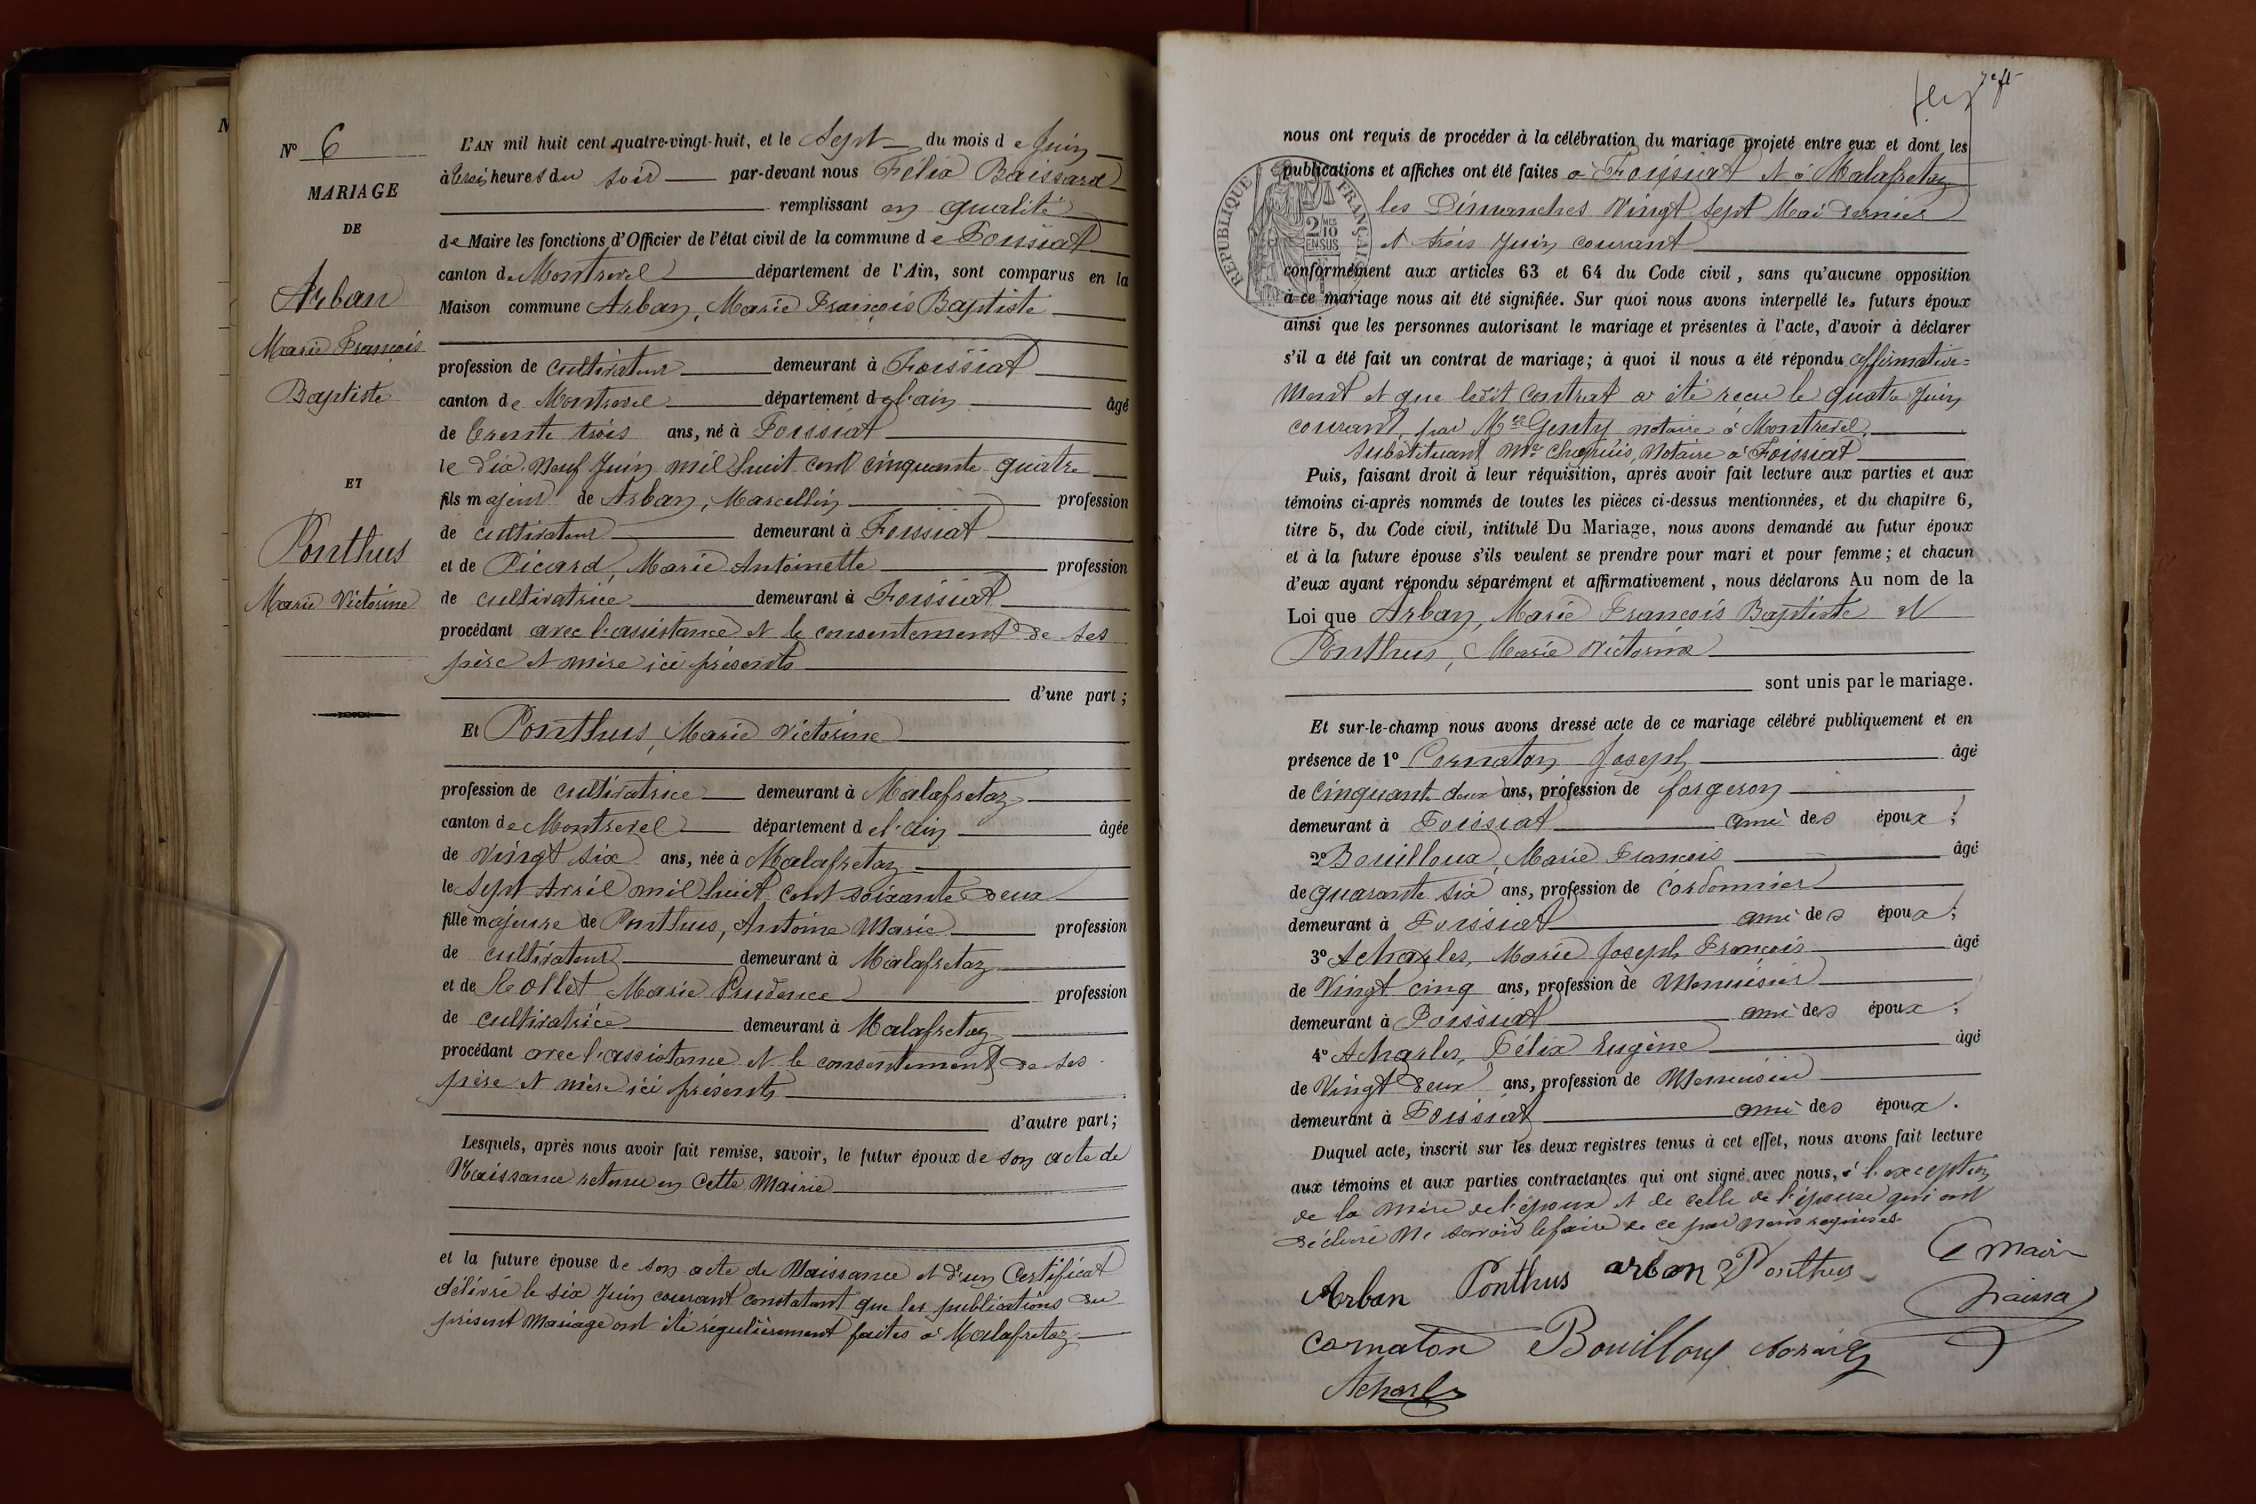 Nº 6
MARIAGE
DE
Arban
Marie François
Baptiste
ET
Ponthus
Marie Victorine
L'AN mil huit cent quatre-vingt-huit, et le Sept du mois de Juin
à trois heures du soir par-devant nous Félix Baissard
remplissant en qualité
de Maire les fonctions d'Officier de l'état civil de la commune de Foissiat
canton de Montrevel département de l'Ain, sont comparus en la
Maison commune Arban, Marie François Baptiste
profession de cultivateur demeurant à Foissiat
canton de Montrevel département de l'ain âgé
de trente trois ans, né à Foissiat
le dix-neuf Juin mil huit cent cinquante quatre
fils majeur de Arban, Marcellin profession
de cultivateur demeurant à Foissiat
et de Picard, Marie Antoinette profession
de cultivatrice demeurant à Foissiat
procédant avec l'assistance et le consentement de ses
père et mère ici présents
d'une part ;
Et Ponthus, Marie Victorine
profession de cultivatrice demeurant à Malafretaz
canton de Montrevel département de l'ain âgée
de vingt six ans, née à Malafretaz
le sept Avril mil huit cent soixante deux
fille majeure de Ponthus, Antoine Marie profession
de cultivateur demeurant à Malafretaz
et de Rollet Marie Prudence profession
de cultivatrice demeurant à Malafretaz
procédant avec l'assistance et le consentement de ses
père et mère ici présents
d'autre part ;
Lesquels, après nous avoir fait remise, savoir, le futur époux de son acte de
Naissance retenu en cette Mairie
et la future épouse de son acte de Naissance et d'un Certificat
délivré le six Juin courant constatant que les publications du
présent Mariage ont été régulièrement faites à Malafretaz
nous ont requis de procéder à la célébration du mariage projeté entre eux et dont les
publications et affiches ont été faites à Foissiat et à Malafretaz
les Dimanches Vingt sept Mai dernier
et trois Juin courant
REPUBLIQUE FRANÇAISE
2/10 MES EN SUS
conformément aux articles 63 et 64 du Code civil, sans qu'aucune opposition
à ce mariage nous ait été signifiée. Sur quoi nous avons interpellé les futurs époux
ainsi que les personnes autorisant le mariage et présentes à l'acte, d'avoir à déclarer
s'il a été fait un contrat de mariage ; à quoi il nous a été répondu affirmative=
ment et que ledit contrat a été reçu le quatre Juin
courant par Me Genty notaire à Montrevel
substituant Me Chapuis, Notaire à Foissiat
Puis, faisant droit à leur réquisition, après avoir fait lecture aux parties et aux
témoins ci-après nommés de toutes les pièces ci-dessus mentionnées, et du chapitre 6,
titre 5, du Code civil, intitulé Du Mariage, nous avons demandé au futur époux
et à la future épouse s'ils veulent se prendre pour mari et pour femme ; et chacun
d'eux ayant répondu séparément et affirmativement, nous déclarons Au nom de la
Loi que Arban, Marie François Baptiste et
Ponthus, Marie Victorine
sont unis par le mariage.
Et sur-le-champ nous avons dressé acte de ce mariage célébré publiquement et en
présence de 1º Cornaton Joseph âgé
de Cinquante deux ans, profession de forgeron
demeurant à Foissiat ami des époux ;
2º Bouilloux, Marie François âgé
de quarante six ans, profession de Cordonnier
demeurant à Foissiat ami des époux ;
3º Acharles, Marie Joseph François âgé
de Vingt cinq ans, profession de Menuisier
demeurant à Foissiat ami des époux ;
4º Acharles, Félix Eugène âgé
de Vingt deux ans, profession de Menuisier
demeurant à Foissiat ami des époux.
Duquel acte, inscrit sur les deux registres tenus à cet effet, nous avons fait lecture
aux témoins et aux parties contractantes qui ont signé avec nous, à l'exception
de la mère de l'époux et de celle de l'épouse qui ont
déclaré ne savoir le faire de ce par nous requises.
Arban Ponthus arban Ponthus Le Maire
cornaton Bouilloux
Acharles